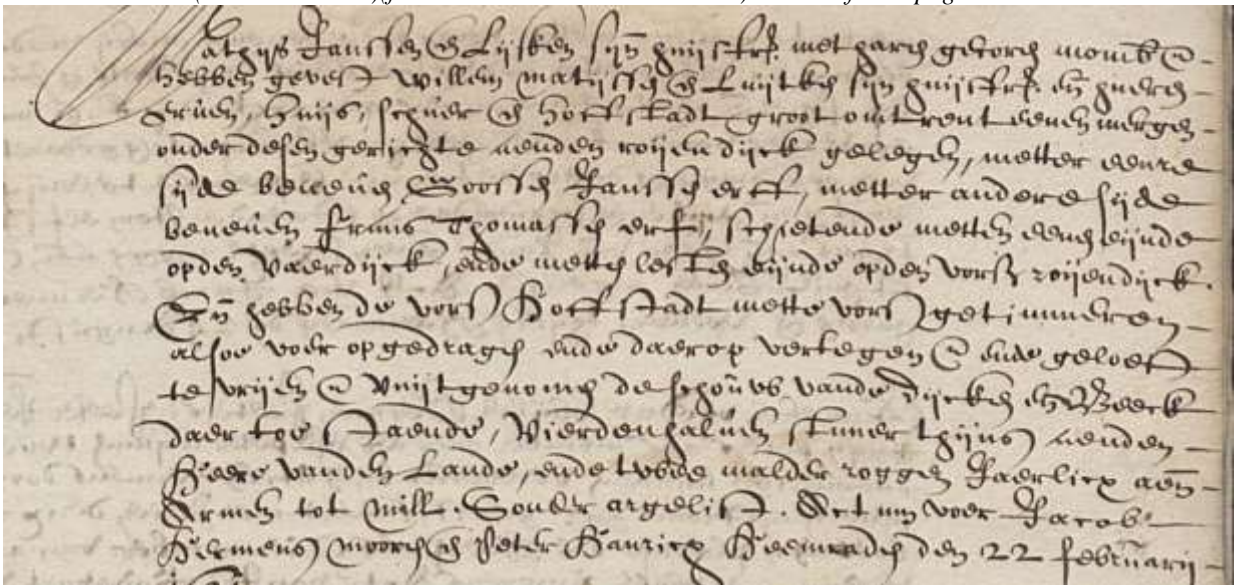 athijs Janssen en Lijsken sijn huijsfr. met haren gecoren momb. en
hebben gevest Willem Matijssen en Luijtken sijn huijsfr. en hueren
erven, Huijs, schuer en Hoffstadt groot omtrent eenen mergen
onder desen gerichte aenden roijendijck gelegen, metter eenre
sijde beneven Goossen Janssen erff, metter andere sijde
beneven Frans Thomassen erff, schietende metten eenen eijnde
opden Vaerdijck, ende metten lesten eijnde opden vors. roijendijck.
En hebben de vors. Hoffstadt mette vors. getimmeren
alsoe voer opgedragen ende daerop vertegen en ende geloeft
te vrijen en vuijtgenomen de schouwe vande Dijcken en Beeck
daer toe staende, Vierdenhalven stuver thijns aenden
Heere vanden Lande, ende twee malder roggen Jaerlicx aen
Armen tot Mill. Sonder argelist. Actum voer Jacob
Hermens Mooren en Peter Hanricx Heemraden den 22 februarii